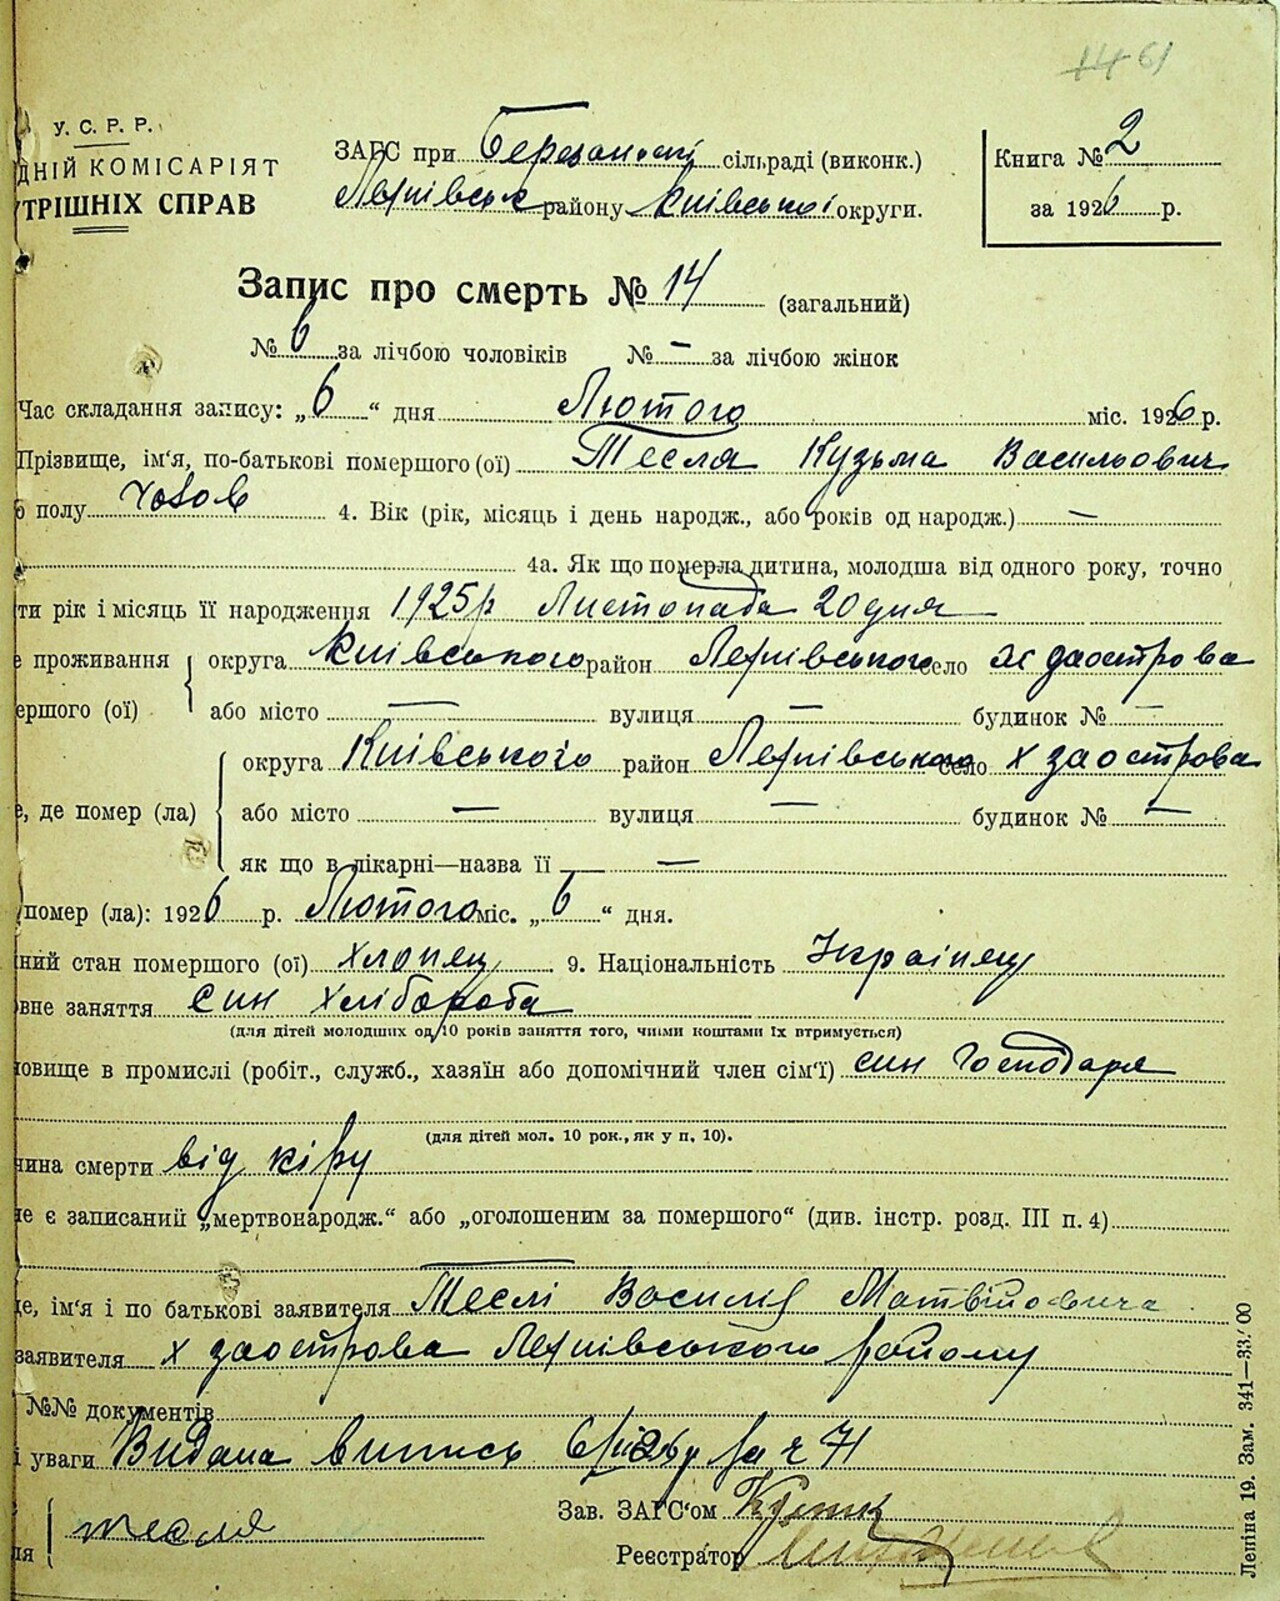 14 61
У. С. Р. Р.
ДНІЙ КОМІСАРІЯТ
ТРІШНІХ СПРАВ
ЗАГС при Березанській сільраді (виконк.)
району Київської округи.
Книга № 2
за 1926 р.
Запис про смерть № 14 (загальний)
№ 6 за лічбою чоловіків № — за лічбою жінок
Час складання запису: „6“ дня Лютого міс. 1926 р.
Прізвище, ім'я, по-батькові помершого (ої) Тесля Кузьма Васильович
о полу чолов 4. Вік (рік, місяць і день народж., або років од народж.) —
4а. Як що померла дитина, молодша від одного року, точно
ти рік і місяць її народження 1925 р Листопада 20 дня
е проживання округа Київського район село
ершого (ої) або місто — вулиця — будинок № —
округа Київського район село х заострова
е, де помер (ла) або місто — вулиця — будинок № —
як що в лікарні—назва її —
помер (ла): 1926 р. Лютого міс. „6“ дня.
ний стан помершого (ої) хлопец 9. Національність Українец
вне заняття син хлібороба
(для дітей молодших од 10 років заняття того, чиїми коштами їх втримується)
овище в промислі (робіт., служб., хазяїн або допомічний член сім'ї) син Господаря
(для дітей мол. 10 рок., як у п. 10).
чина смерти від кіру
не є записаний „мертвонародж.“ або „оголошеним за помершого“ (див. інстр. розд. III п. 4)
це, ім'я і по батькові заявителя Теслі Василя Матвійовича
заявителя х заострова району
№№ документів
і уваги Видана випись 6/II 26 р за ч 71
ля тесля
Зав. ЗАГС'ом
Реєстратор
Леніна 19. Зам. 341—33.000